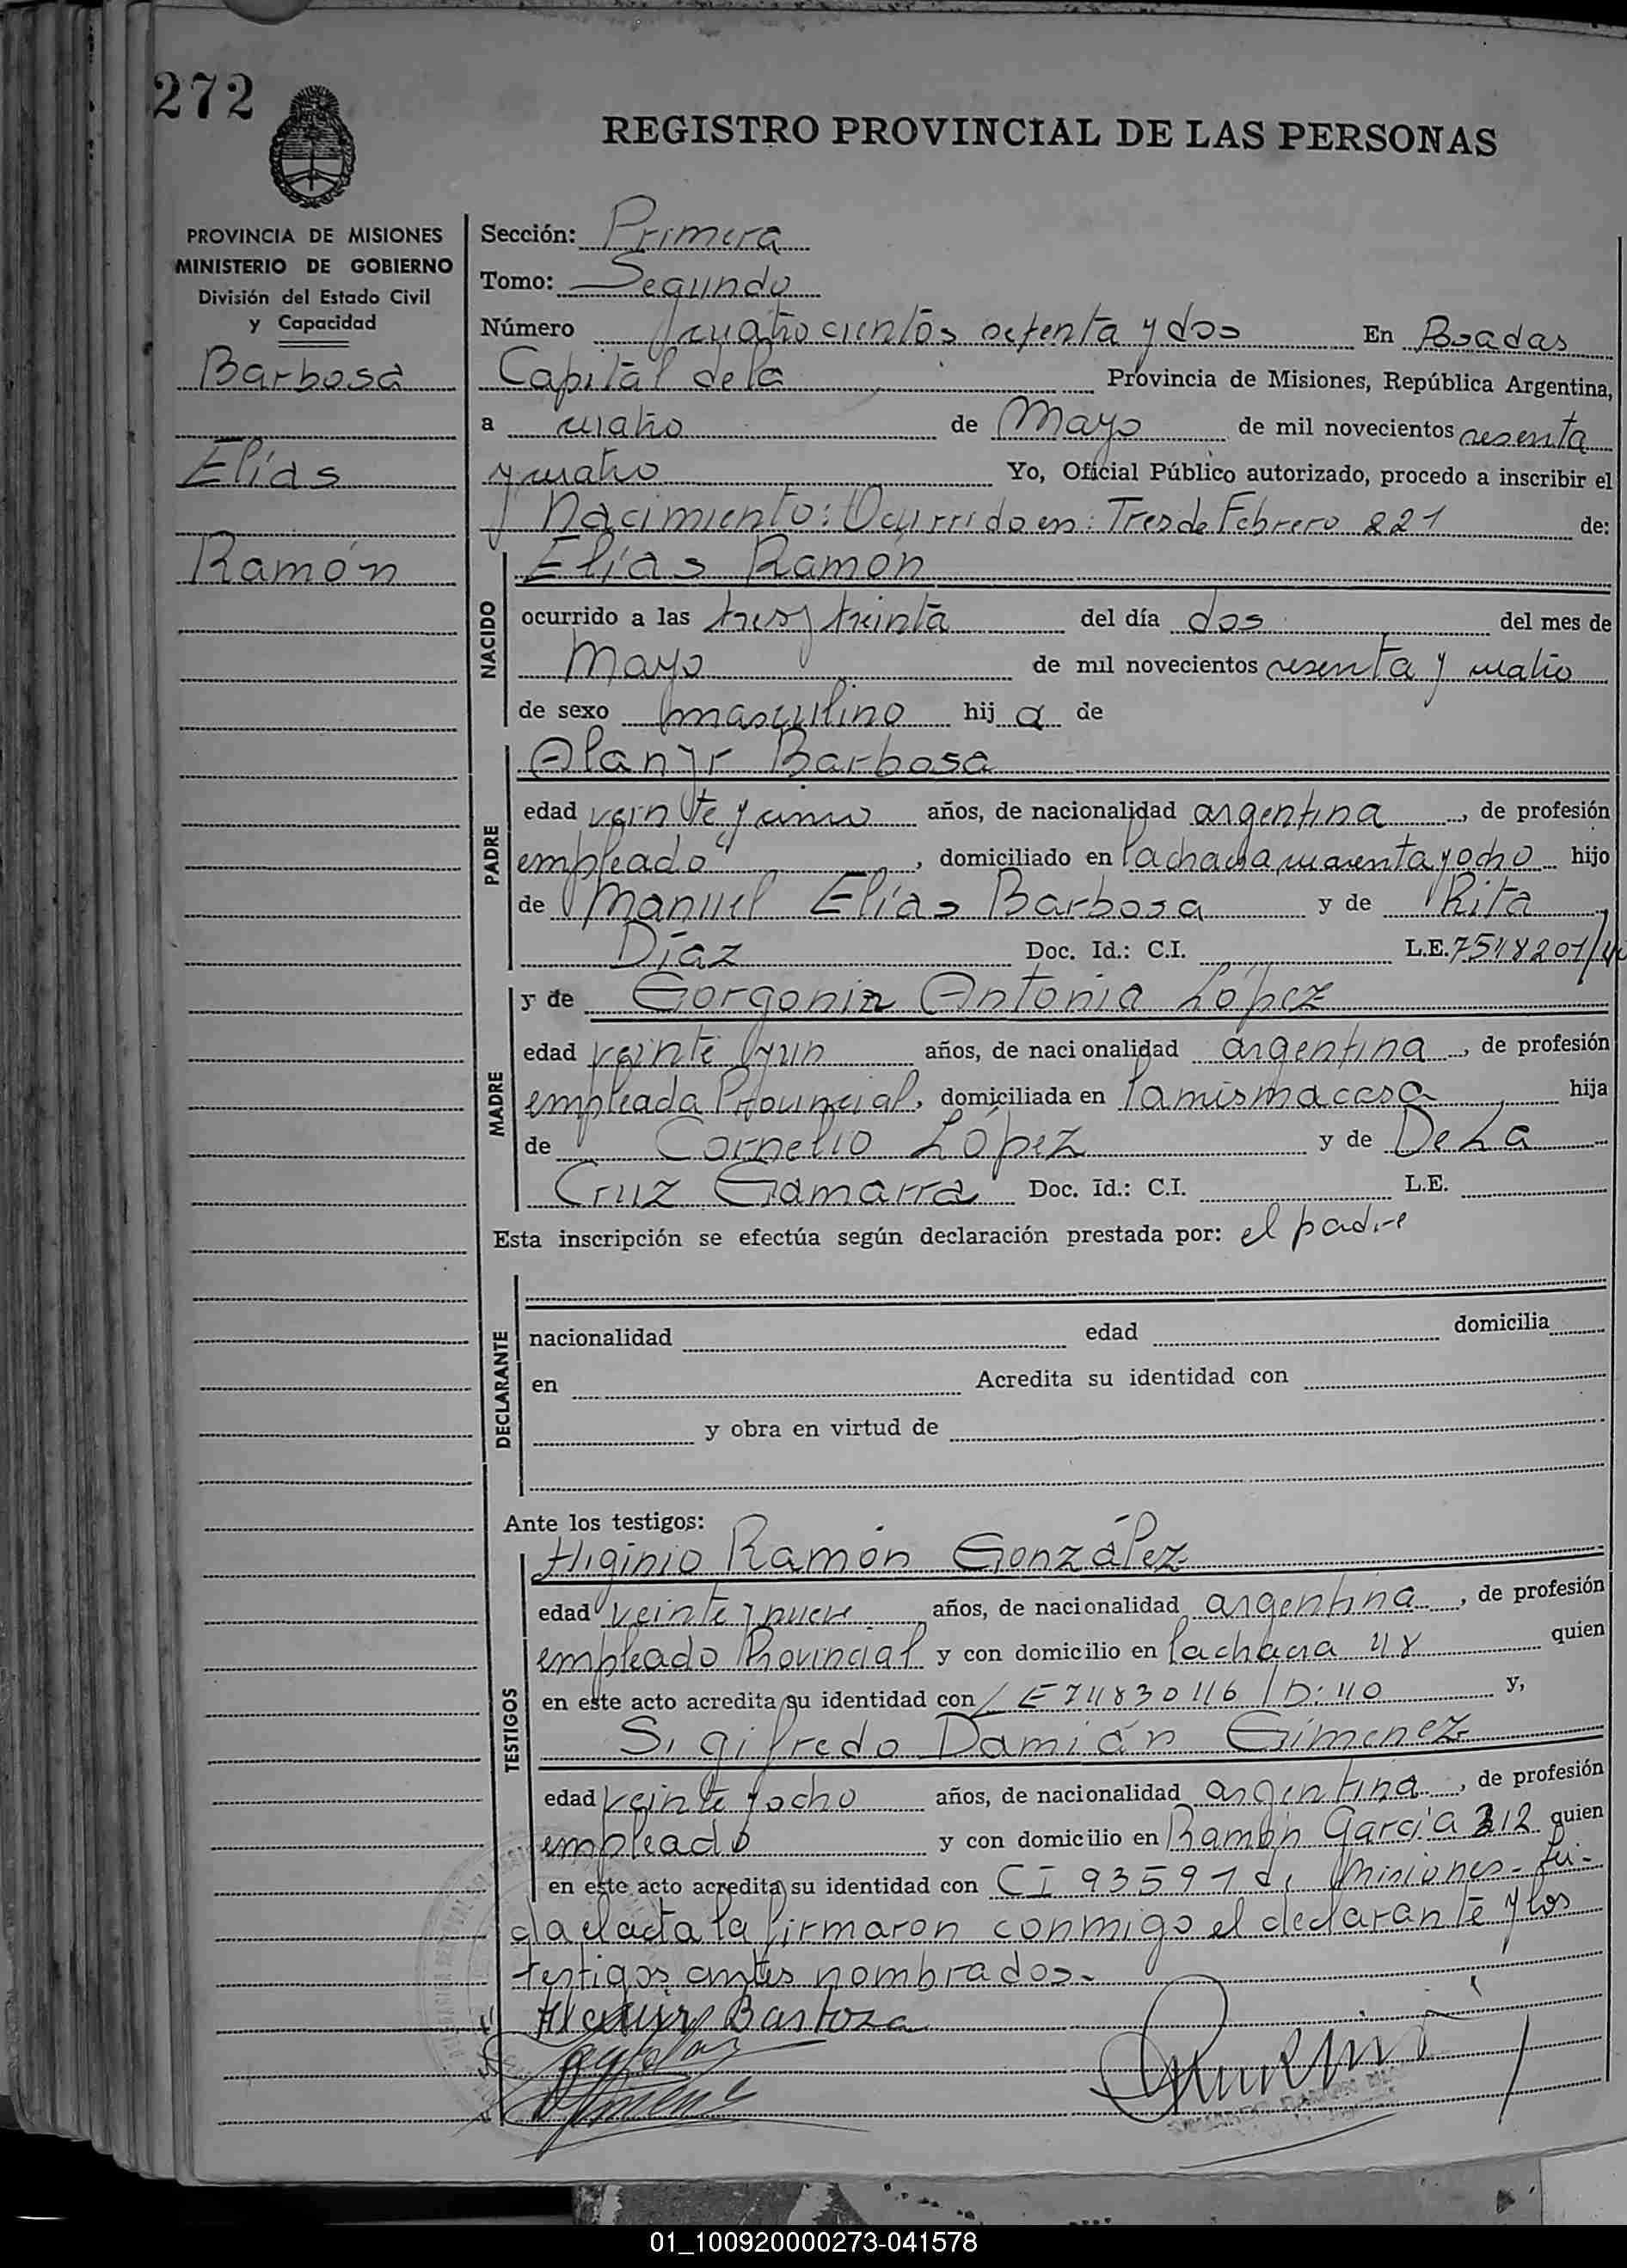 272
REGISTRO PROVINCIAL DE LAS PERSONAS
PROVINCIA DE MISIONES
MINISTERIO DE GOBIERNO
División del Estado Civil
y Capacidad
Barbosa
Elías
Ramón
Sección: Primera
Tomo: Segundo
Número cuatrocientos setenta y dos En Posadas
Capital de la Provincia de Misiones, República Argentina,
a cuatro de Mayo de mil novecientos sesenta
y cuatro Yo, Oficial Público autorizado, procedo a inscribir el
Nacimiento: Ocurrido en: Tres de Febrero 221 de:
NACIDO
Elías Ramón
ocurrido a las tres y treinta del día dos del mes de
Mayo de mil novecientos sesenta y cuatro
de sexo masculino hij o de
PADRE
Alanir Barbosa
edad veinte y cinco años, de nacionalidad argentina, de profesión
empleado, domiciliado en la chacra cuarenta y ocho hijo
de Manuel Elías Barbosa y de Rita
Díaz Doc. Id.: C.I. L.E. 7548201/40
MADRE
y de Gorgonia Antonia López
edad veinte y un años, de nacionalidad argentina, de profesión
empleada Provincial, domiciliada en la misma casa hija
de Cornelio López y de De La
Cruz Gamarra Doc. Id.: C.I. L.E.
Esta inscripción se efectúa según declaración prestada por: el padre
DECLARANTE
nacionalidad edad domicilia
en Acredita su identidad con
y obra en virtud de
Ante los testigos:
TESTIGOS
Higinio Ramón González
edad veinte y nueve años, de nacionalidad argentina, de profesión
empleado Provincial y con domicilio en la chacra 48 quien
en este acto acredita su identidad con LE 7483046 D: 40 y,
Sigifredo Damián Gimenez
edad veinte y ocho años, de nacionalidad argentina, de profesión
empleado y con domicilio en Ramón García 212 quien
en este acto acredita su identidad con CI 93591 de Misiones- Leí-
da el acta la firmaron conmigo el declarante y los
testigos antes nombrados.-
Barboza
01_100920000273-041578